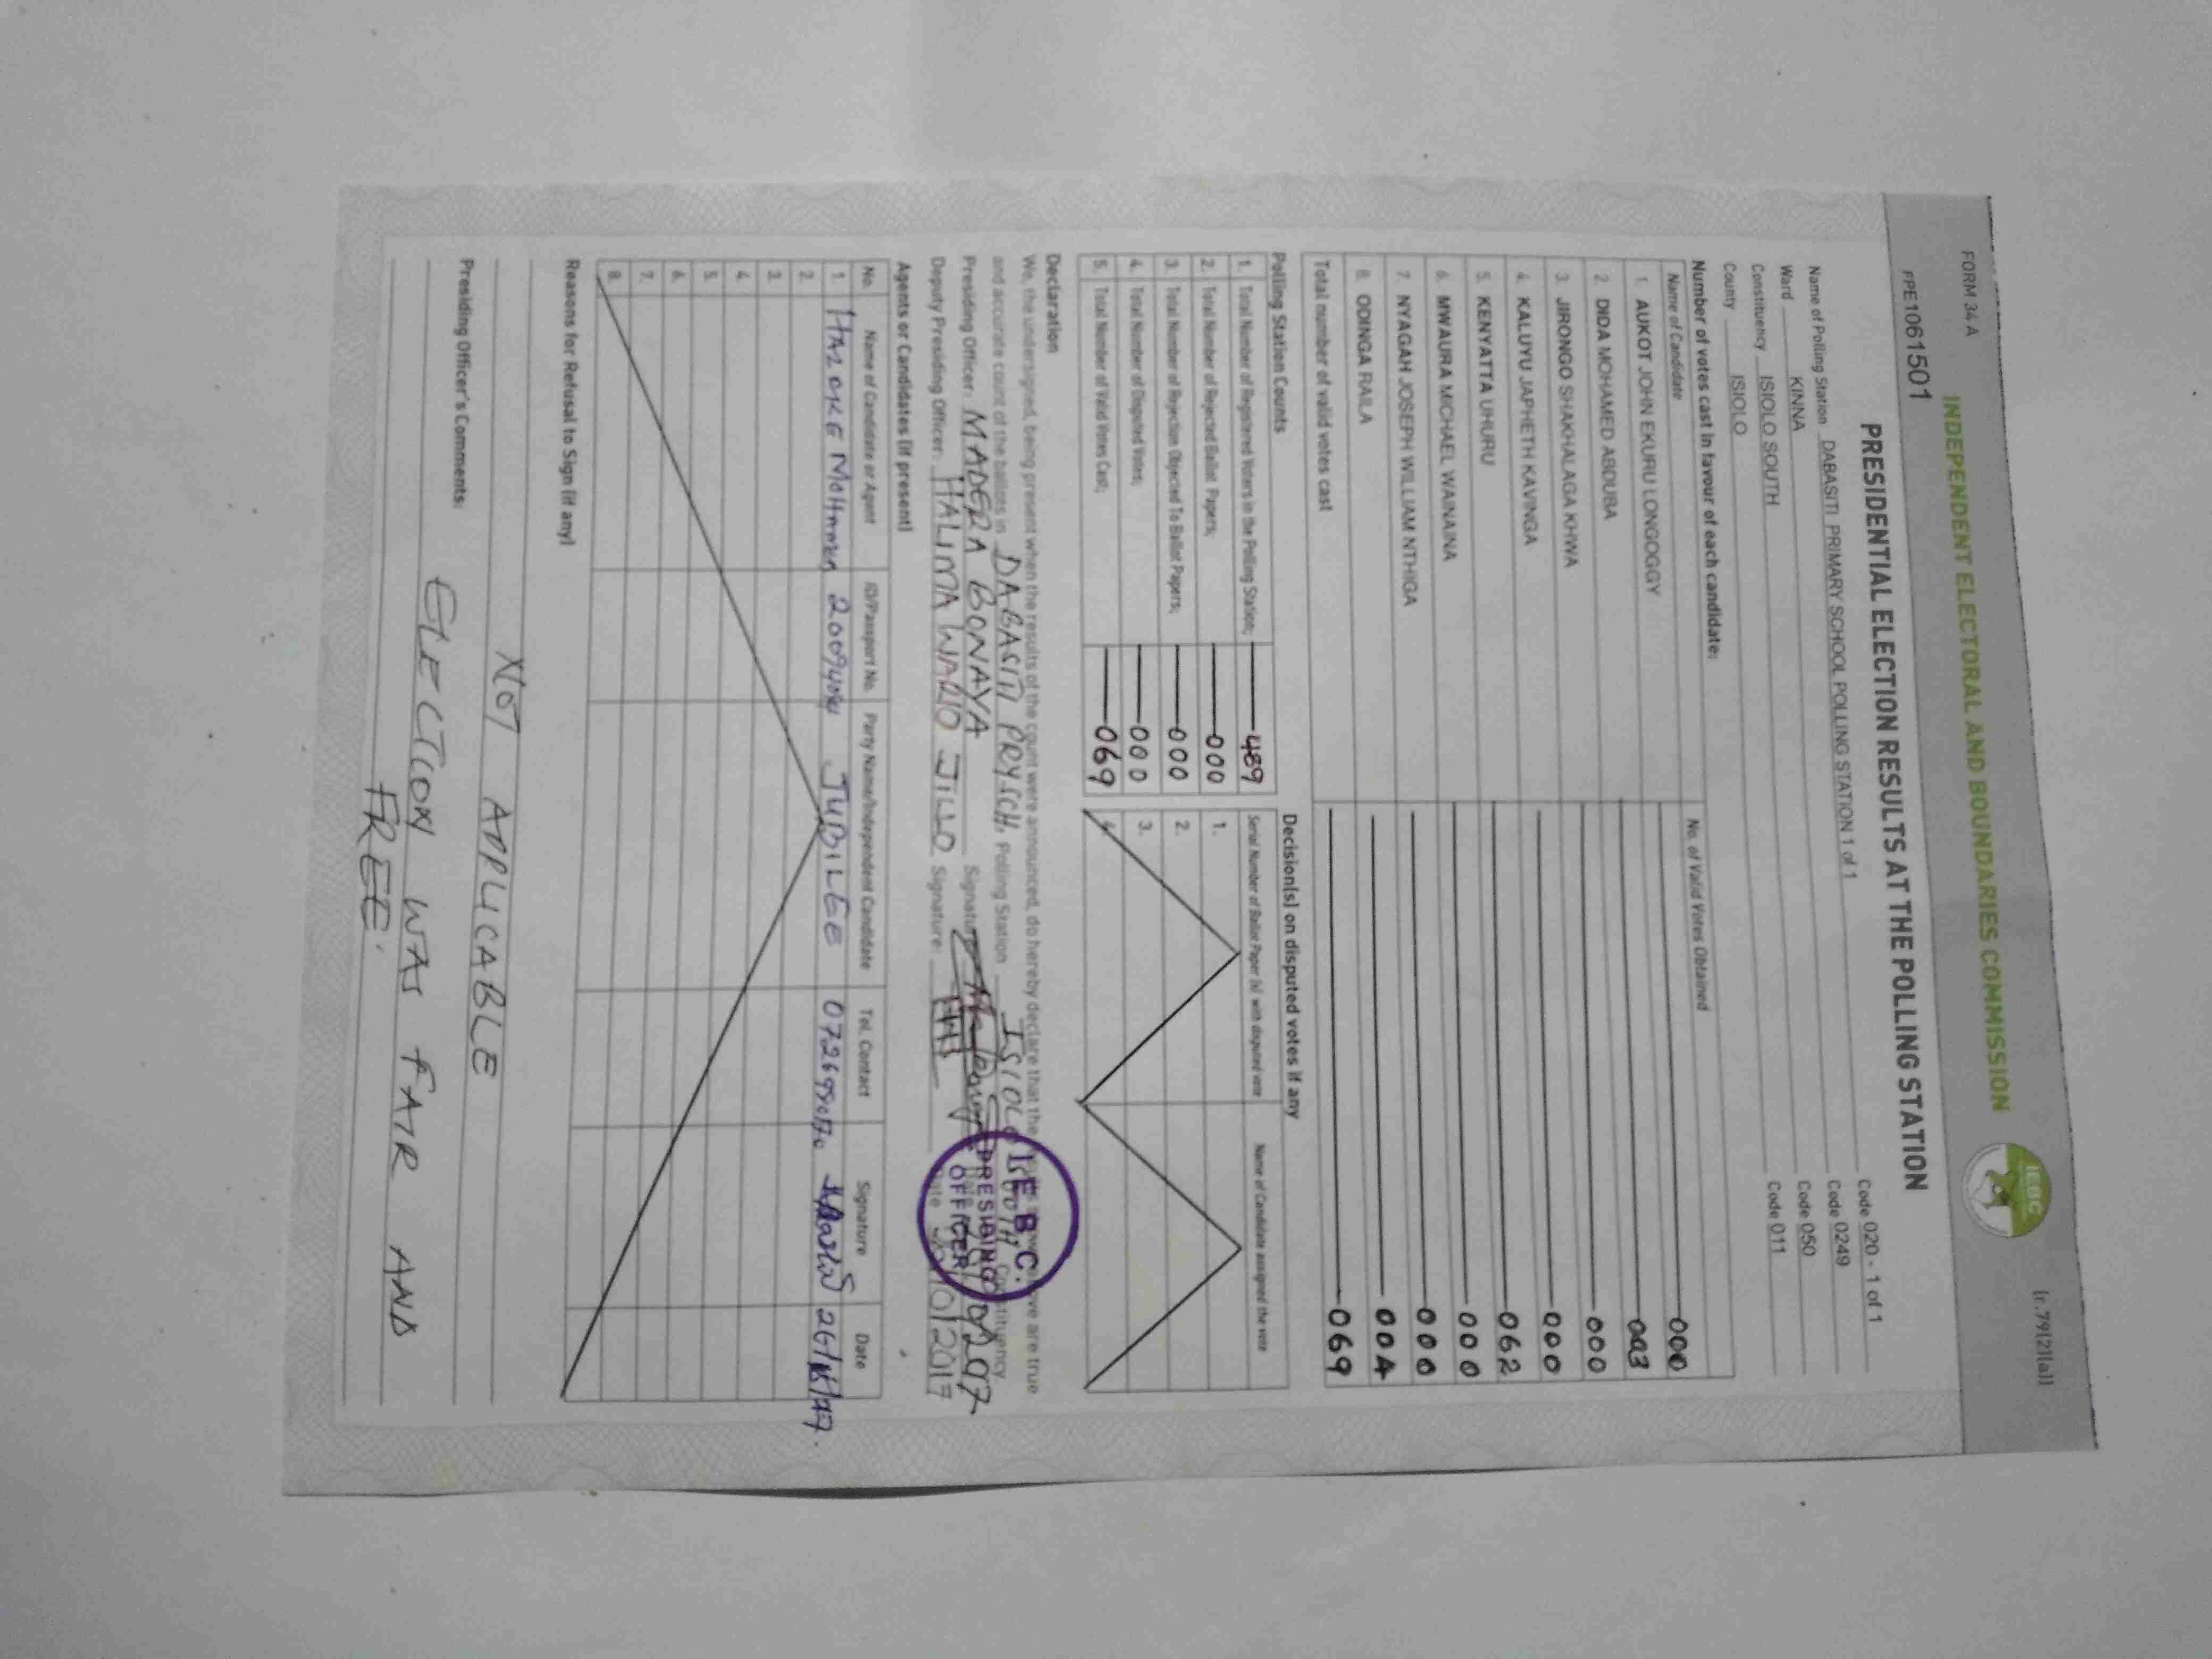 FORM 34 A
(r.79(2)(a))
INDEPENDENT ELECTORAL AND BOUNDARIES COMMISSION
IEBC
FPE1061501
PRESIDENTIAL ELECTION RESULTS AT THE POLLING STATION
Name of Polling Station DABASITI PRIMARY SCHOOL POLLING STATION 1 of 1 Code 020 - 1 of 1
Ward KINNA Code 0249
Constituency ISIOLO SOUTH Code 050
County ISIOLO Code 011
Number of votes cast in favour of each candidate:
Name of Candidate No. of Valid Votes Obtained
1. AUKOT JOHN EKURU LONGOGGY 000
2. DIDA MOHAMED ABDUBA 003
3. JIRONGO SHAKHALAGA KHWA 000
4. KALUYU JAPHETH KAVINGA 000
5. KENYATTA UHURU 062
6. MWAURA MICHAEL WAINAINA 000
7. NYAGAH JOSEPH WILLIAM NTHIGA 000
8. ODINGA RAILA 004
Total number of valid votes cast 069
Polling Station Counts
1. Total Number of Registered Voters in the Polling Station; 489
2. Total Number of Rejected Ballot Papers; 000
3. Total Number of Rejection Objected To Ballot Papers; 000
4. Total Number of Disputed Votes; 000
5. Total Number of Valid Votes Cast; 069
Decision(s) on disputed votes if any
Serial Number of Ballot Paper (s) with disputed vote Name of Candidate assigned the vote
1.
2.
3.
4.
Declaration
We, the undersigned, being present when the results of the count were announced, do hereby declare that the above are true
and accurate count of the ballots in DABASITI PRY.SCH. Polling Station ISIOLO SOUTH Constituency
Presiding Officer: MADERA BONAYA Signature:
Deputy Presiding Officer: HALIMA WARIO JILLO Signature: Date 26/10/2017
I.E.B.C.
PRESIDING
OFFICER
Agents or Candidates (if present)
No. Name of Candidate or Agent ID/Passport No. Party Name/Independent Candidate Tel. Contact Signature Date
1. JUBILEE
2.
3.
4.
5.
6.
7.
8.
Reasons for Refusal to Sign (if any)
NOT APPLICABLE
Presiding Officer's Comments:
ELECTION WAS FAIR AND
FREE.